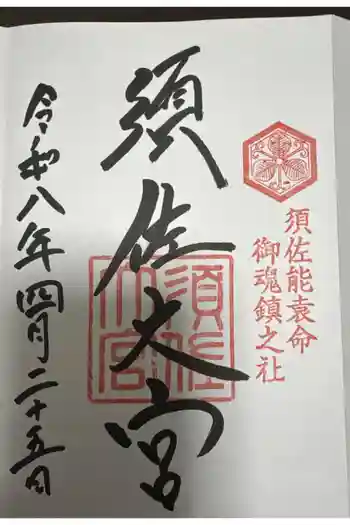 須佐能袁命
御魂鎮之社
須佐大宮
須佐
大宮
令和八年四月二十五日